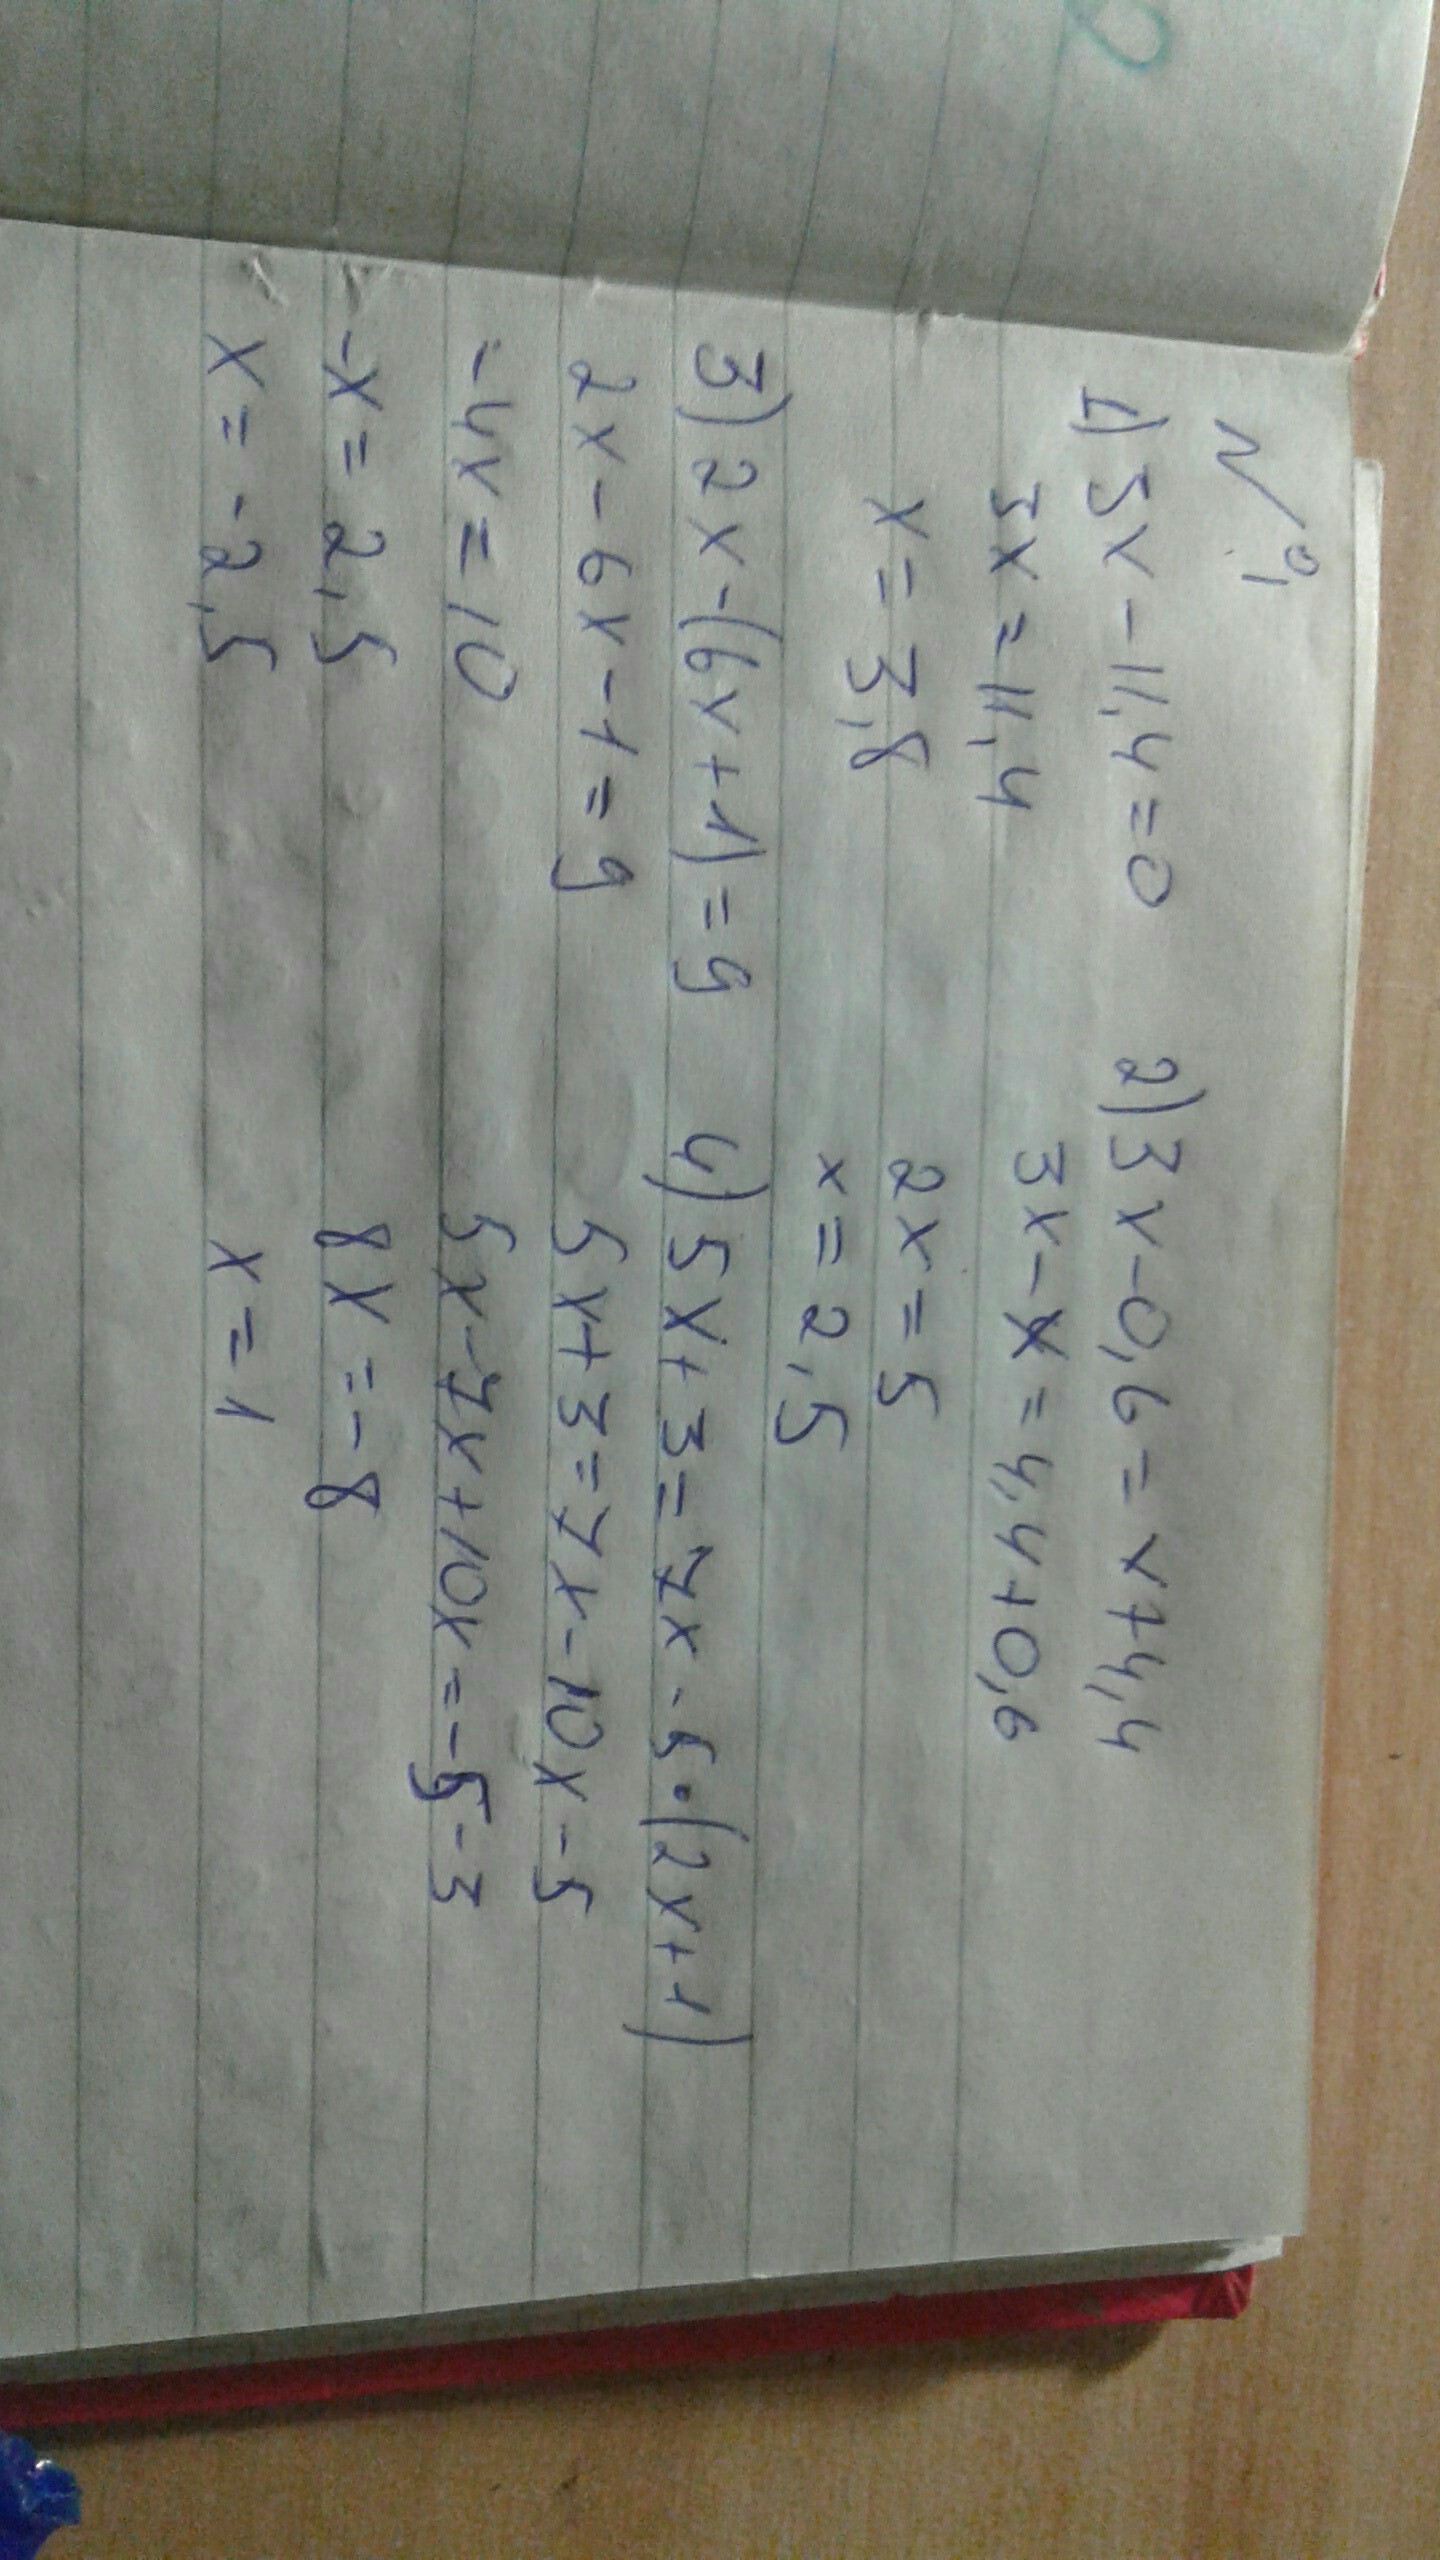 2
№1
1) 3x-11,4=0
3x=11,4
x=3,8
2) 3x-0,6=x+4,4
3x-x=4,4+0,6
2x=5
x=2,5
3) 2x-(6x+1)=9
2x-6x-1=9
-4x=10
-x=2,5
x=-2,5
4) 5x+3=7x-5·(2x+1)
5x+3=7x-10x-5
5x-7x+10x=-5-3
8x=-8
x=1